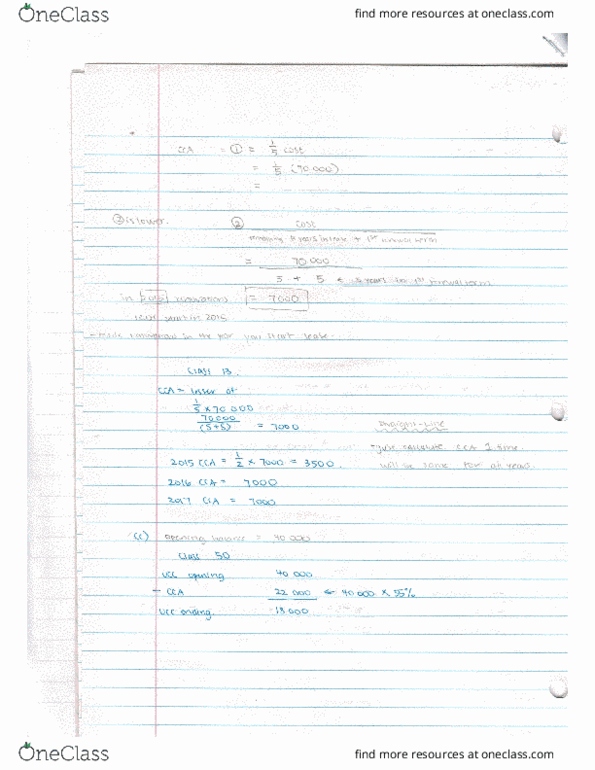 OneClass
find more resources at oneclass.com
CCA = ① = 1/5 cost
= 1/5 (70 000)
=
② is lower. ② cost
remaining # years in lease + 1st renewal term
= 70 000
5 + 5 ← years to 1st renewal term
in renovations = 7000
2015
- made in the year you start lease.
Class 13.
CCA = lesser of
1/5 × 70 000
70000
(5+5) = 7000 straight-line
2015 CCA = 1/2 × 7000 = 3500. just calculate CCA 1 time.
2016 CCA = 7000 will be same for all years.
2017 CCA = 7000
(c) opening balance = 40 000
Class 50
UCC opening 40 000
- CCA 22 000 ← 40 000 × 55%
UCC ending. 18 000
OneClass
find more resources at oneclass.com